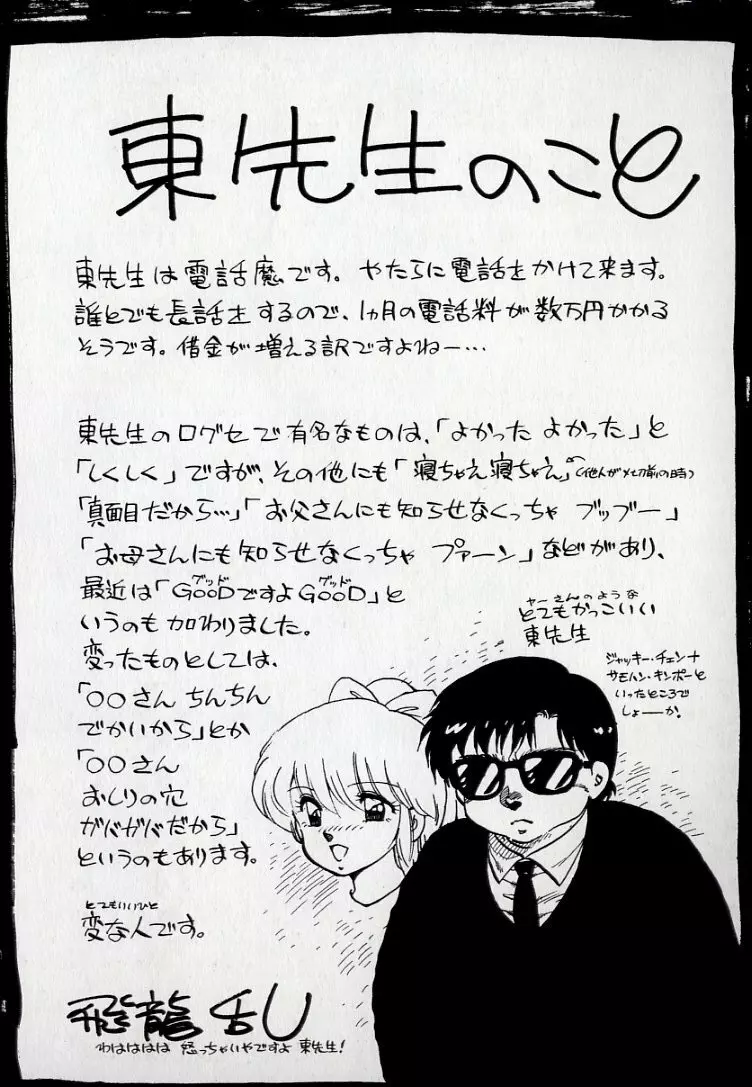 東先生のこと
東先生は電話魔です。やたらに電話をかけて来ます。
誰とでも長話をするので、1ヵ月の電話料が数万円かかる
そうです。借金が増える訳ですよねー…
東先生の口グセで有名なものは、「よかった よかった」と
「しくしく」ですが、その他にも「寝ちゃえ寝ちゃえ」(他人が〆切前の時)
「真面目だから…」「お父さんにも知らせなくっちゃ ブッブー」
「お母さんにも知らせなくっちゃ プァーン」などがあり、
グッド グッド
最近は「GOODですよGOOD」と
いうのも加わりました。
変ったものとしては、
「○○さん ちんちん
でかいから」とか
「○○さん
おしりの穴
ガバガバだから」
というのもあります。
とてもいいひと
変な人です。
ヤーさんのような
とてもかっこいい
東先生
ジャッキー・チェン+
サモハン・キンポーと
いったところで
しょーか。
飛龍 乱
わはははは 怒っちゃいやですよ 東先生!